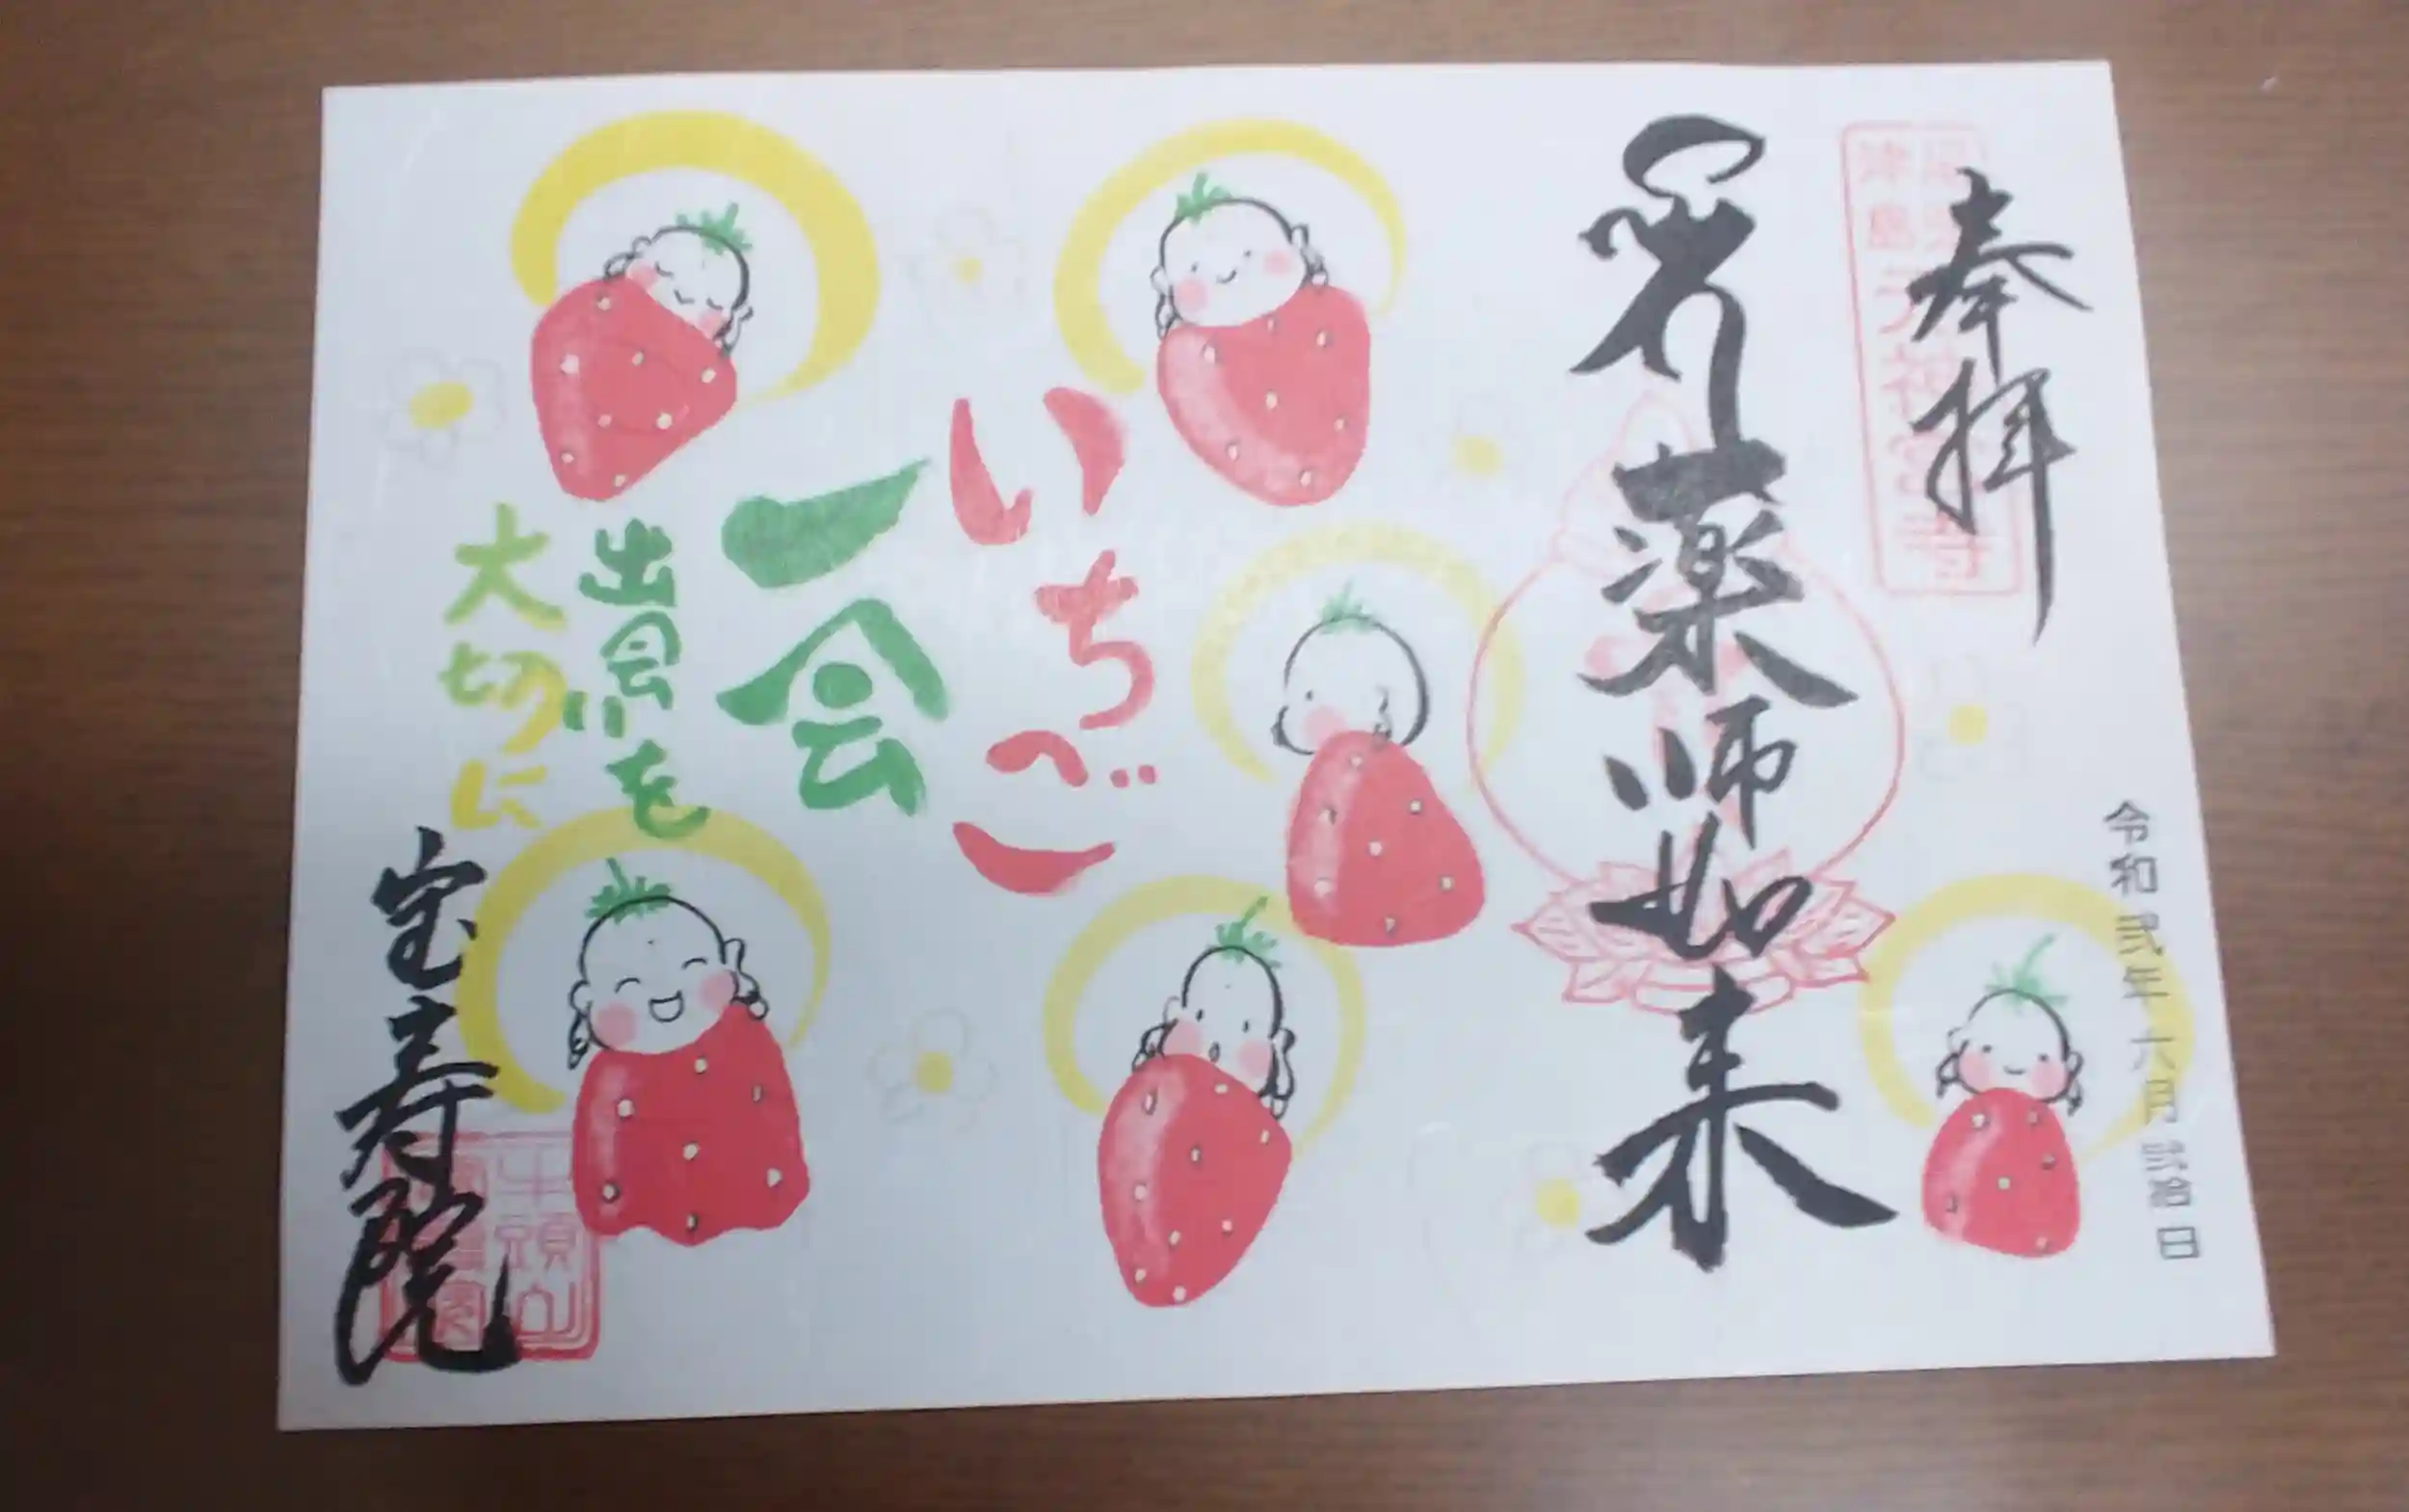 奉拝
令和弐年六月弐拾日
薬師如来
いちご
一会
出会いを
大切に
宝寿院
牛頭山